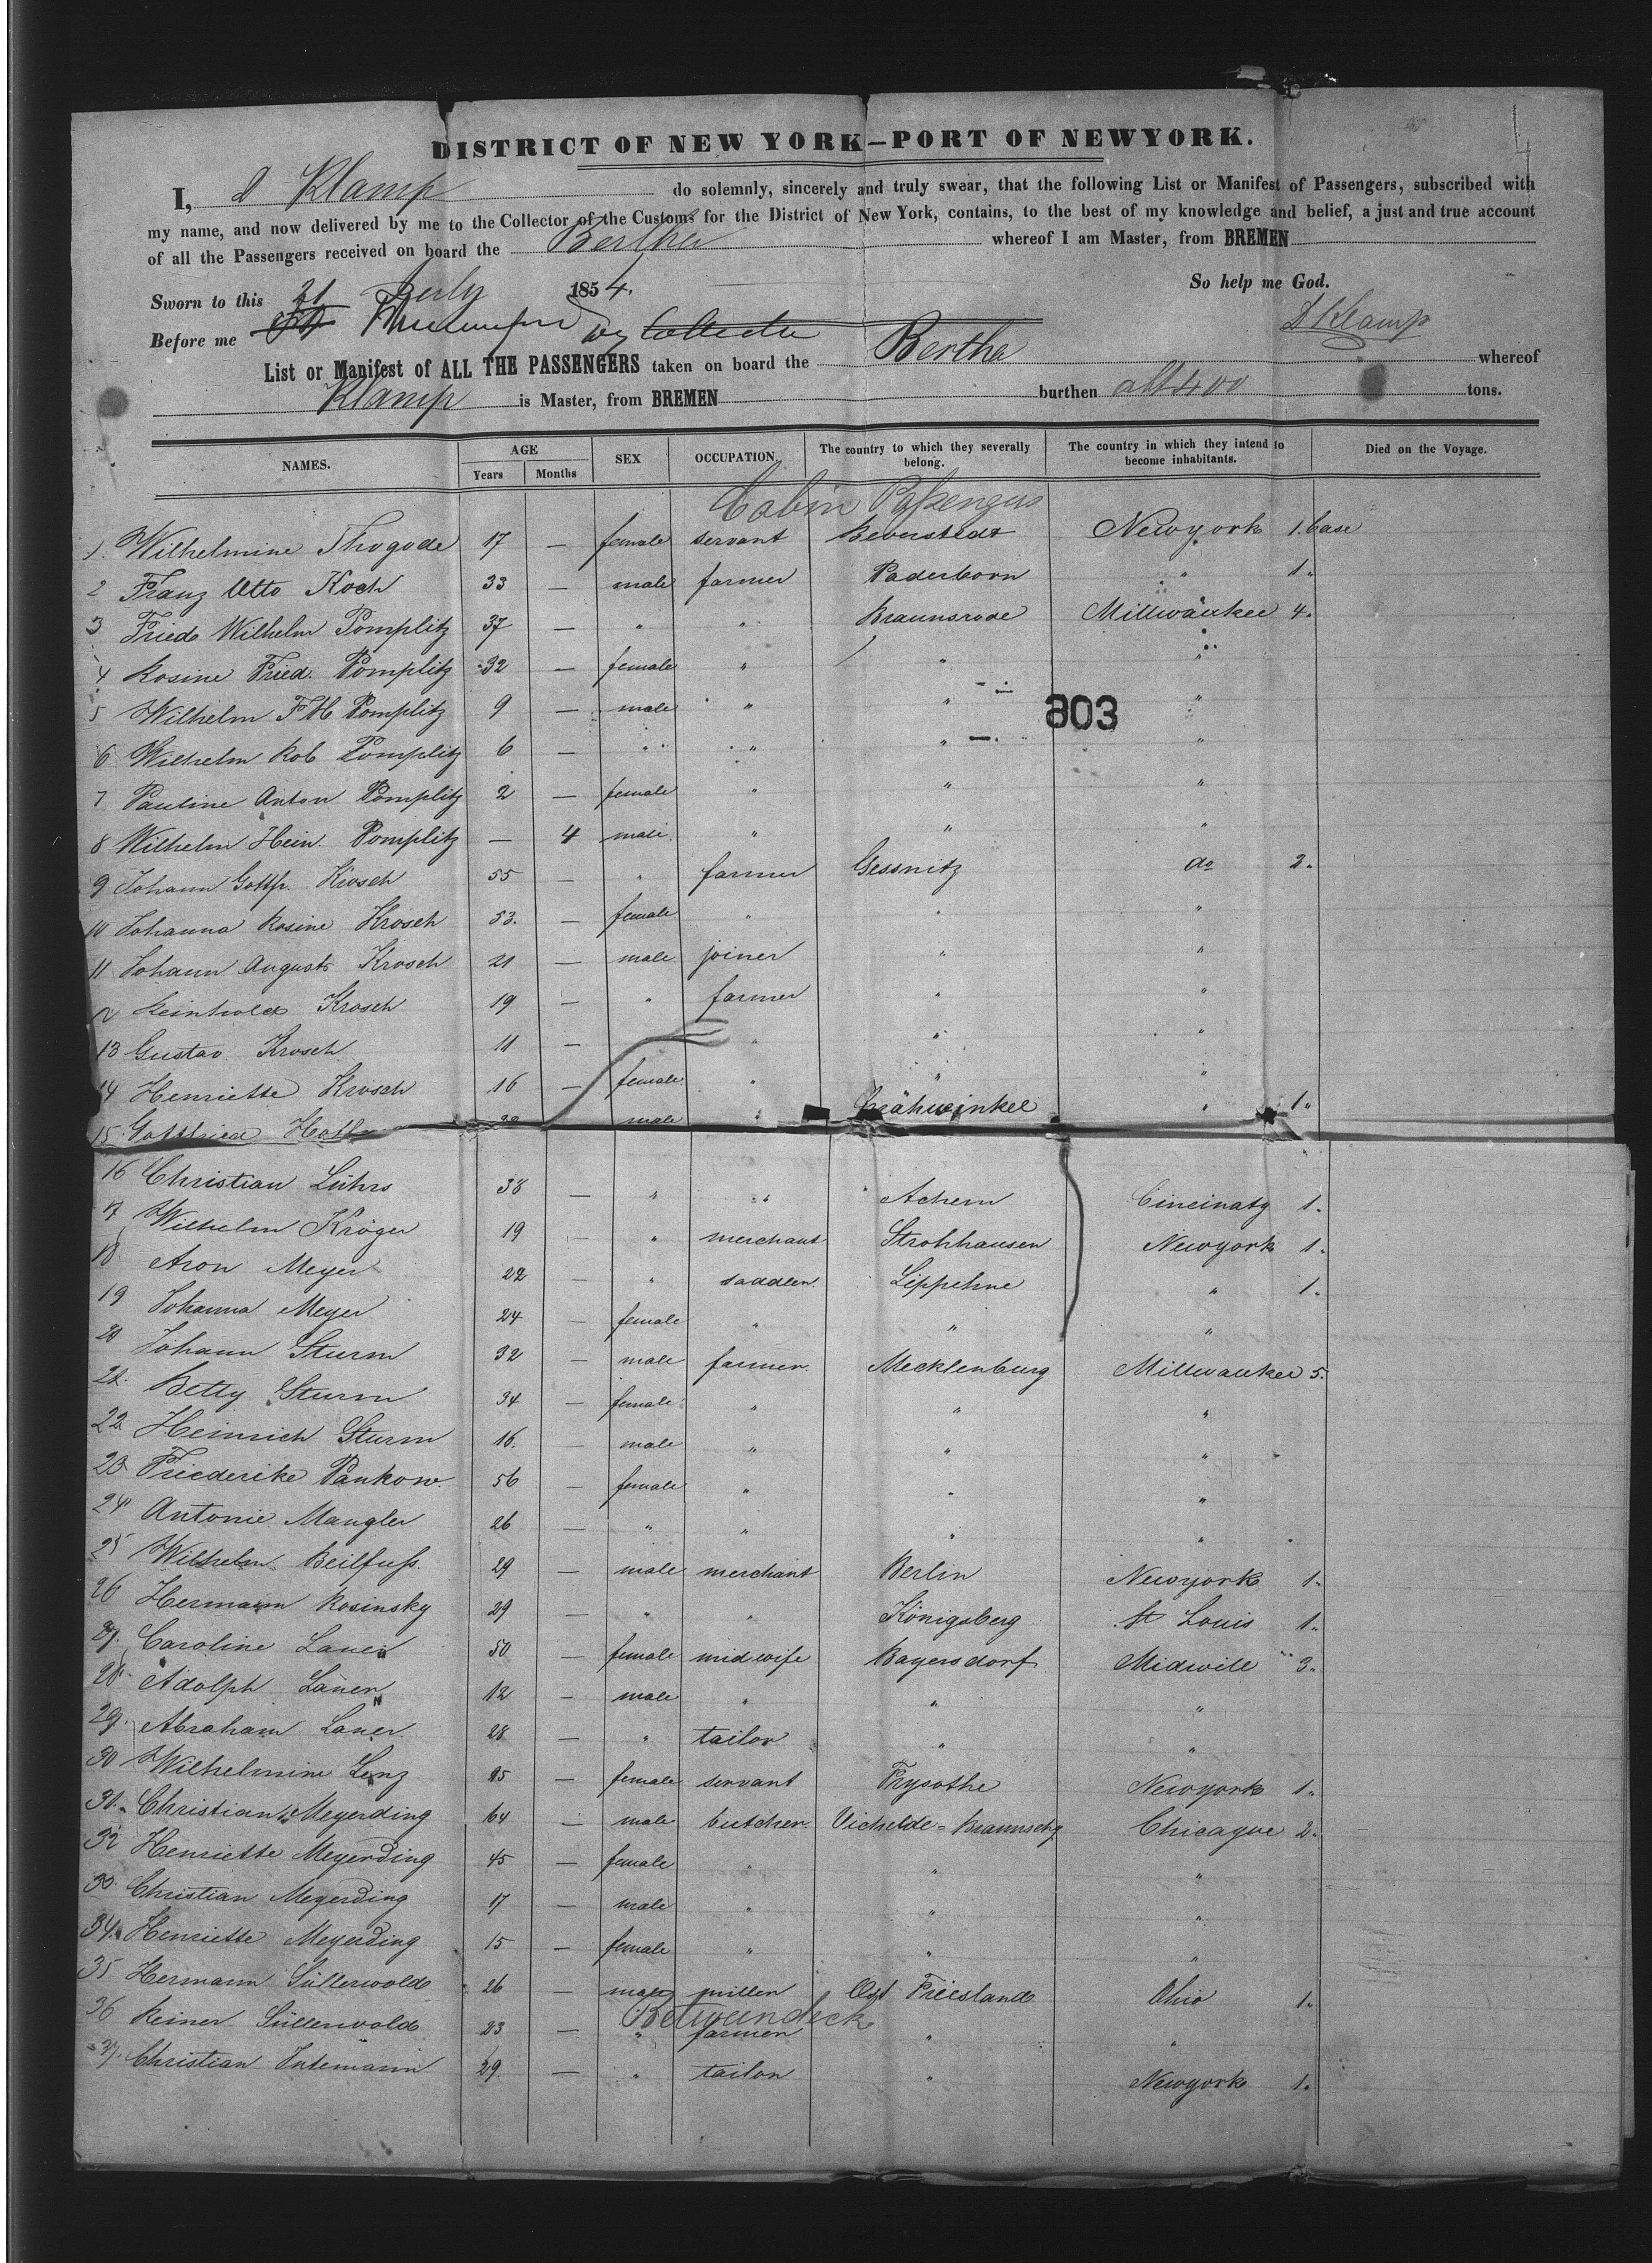 DISTRICT OF NEW YORK—PORT OF NEWYORK.
I, D Klamp do solemnly, sincerely and truly swear, that the following List or Manifest of Passengers, subscribed with
my name, and now delivered by me to the Collector of the Customs for the District of New York, contains, to the best of my knowledge and belief, a just and true account
of all the Passengers received on board the Bertha whereof I am Master, from BREMEN
So help me God.
Sworn to this 21 July 1854.
D Klamp
Before me
List or Manifest of ALL THE PASSENGERS taken on board the Bertha whereof
Klamp is Master, from BREMEN burthen abt 400 tons.
NAMES. AGE Years Months SEX OCCUPATION. The country to which they severally belong. The country in which they intend to become inhabitants. Died on the Voyage.
Cabin Passengers
1. Wilhelmine Thogode 17 — female servant Beverstedt Newyork 1. Case
2 Franz Otto Koch 33 — male farmer Paderborn " 1 "
3 Fried. Wilhelm Pomplitz 37 — " " Braunsrode Millwaukee 4 "
4 Rosine Fried. Pomplitz 32 — female " " "
5 Wilhelm F H Pomplitz 9 — male " " "
803
6 Wilhelm Rob Pomplitz 6 — " " " "
7 Pauline Anton Pomplitz 2 — female " " "
8 Wilhelm Hein. Pomplitz — 4 male " " "
9 Johann Gottfr. Krosch 55 — " farmer Gessnitz do 2 "
10 Johanna Rosine Krosch 53. — female " " "
11 Johann August Krosch 21 — male joiner " "
12 Reinhold Krosch 19 — " farmer " "
13 Gustav Krosch 11 — " " "
14 Henriette Krosch 16 — female " " "
15 Gottfried male Krähwinkel " 1 "
16 Christian Lührs 38 — " " Achem Cincinaty 1 "
17 Wilhelm Kröger 19 — " merchant Strohhausen Newyork 1 "
18 Aron Meyer 22 — " saddler Lippehne " 1 "
19 Johanna Meyer 24 — female " " "
20 Johann Sturm 32 — male farmer Mecklenburg Millwaukee 5 "
21. Betty Sturm 34 — female " " "
22 Heinrich Sturm 16. — male " " "
23 Friederike Pankow 56 — female " " "
24 Antonie Mangler 26 — " " " "
25 Wilhelm Beilfuss 29 — male merchant Berlin Newyork 1 "
26 Hermann Rosinsky 29 — " " Königsberg St Louis 1 "
27. Caroline Lauer 50 — female midwife Bayersdorf Midwill 3 "
28. Adolph Lauer 12 — male " " "
29. Abraham Lauer 28 — " tailor " "
30 Wilhelmine Lenz 25 — female servant Frysothe Newyork 1 "
31. Christian Meyerding 64 — male butcher Vichelde = Braunschg Chicague 2 "
32 Henriette Meyerding 45 — female " " "
33 Christian Meyerding 17 — male " " "
34. Henriette Meyerding 15 — female " " "
35 Hermann Süllerwold 26 — male miller Ost Friesland Ohio 1 "
Betweendeck
36 Reiner Süllerwold 23 — " farmer " "
37. Christian Intemann 29 — " tailor " Newyork 1 "